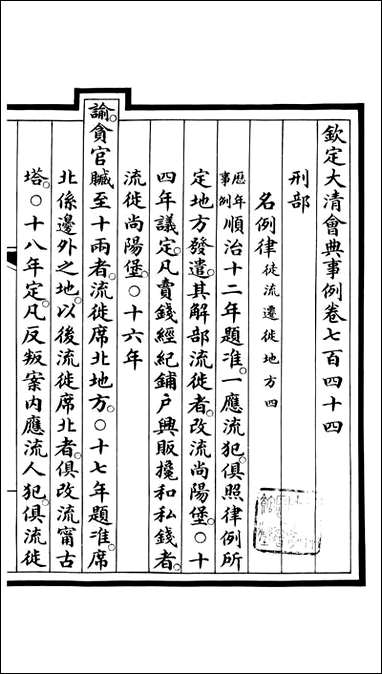 欽定大清會典事例卷七百四十四
刑部
名例律徒流遷徙地方四
歷年事例順治十二年題准。一應流犯。俱照律例所
定地方發遣。其解部流徙者。改流尚陽堡。○十
四年議定。凡賣錢經紀鋪户興販攙和私錢者。
流徙尚陽堡。○十六年
諭。貪官贓至十兩者。流徙席北地方。○十七年題准。席
北係邊外之地。以後流徙席北者。俱改流甯古
塔。○十八年定。凡反叛案内應流人犯。俱流徙